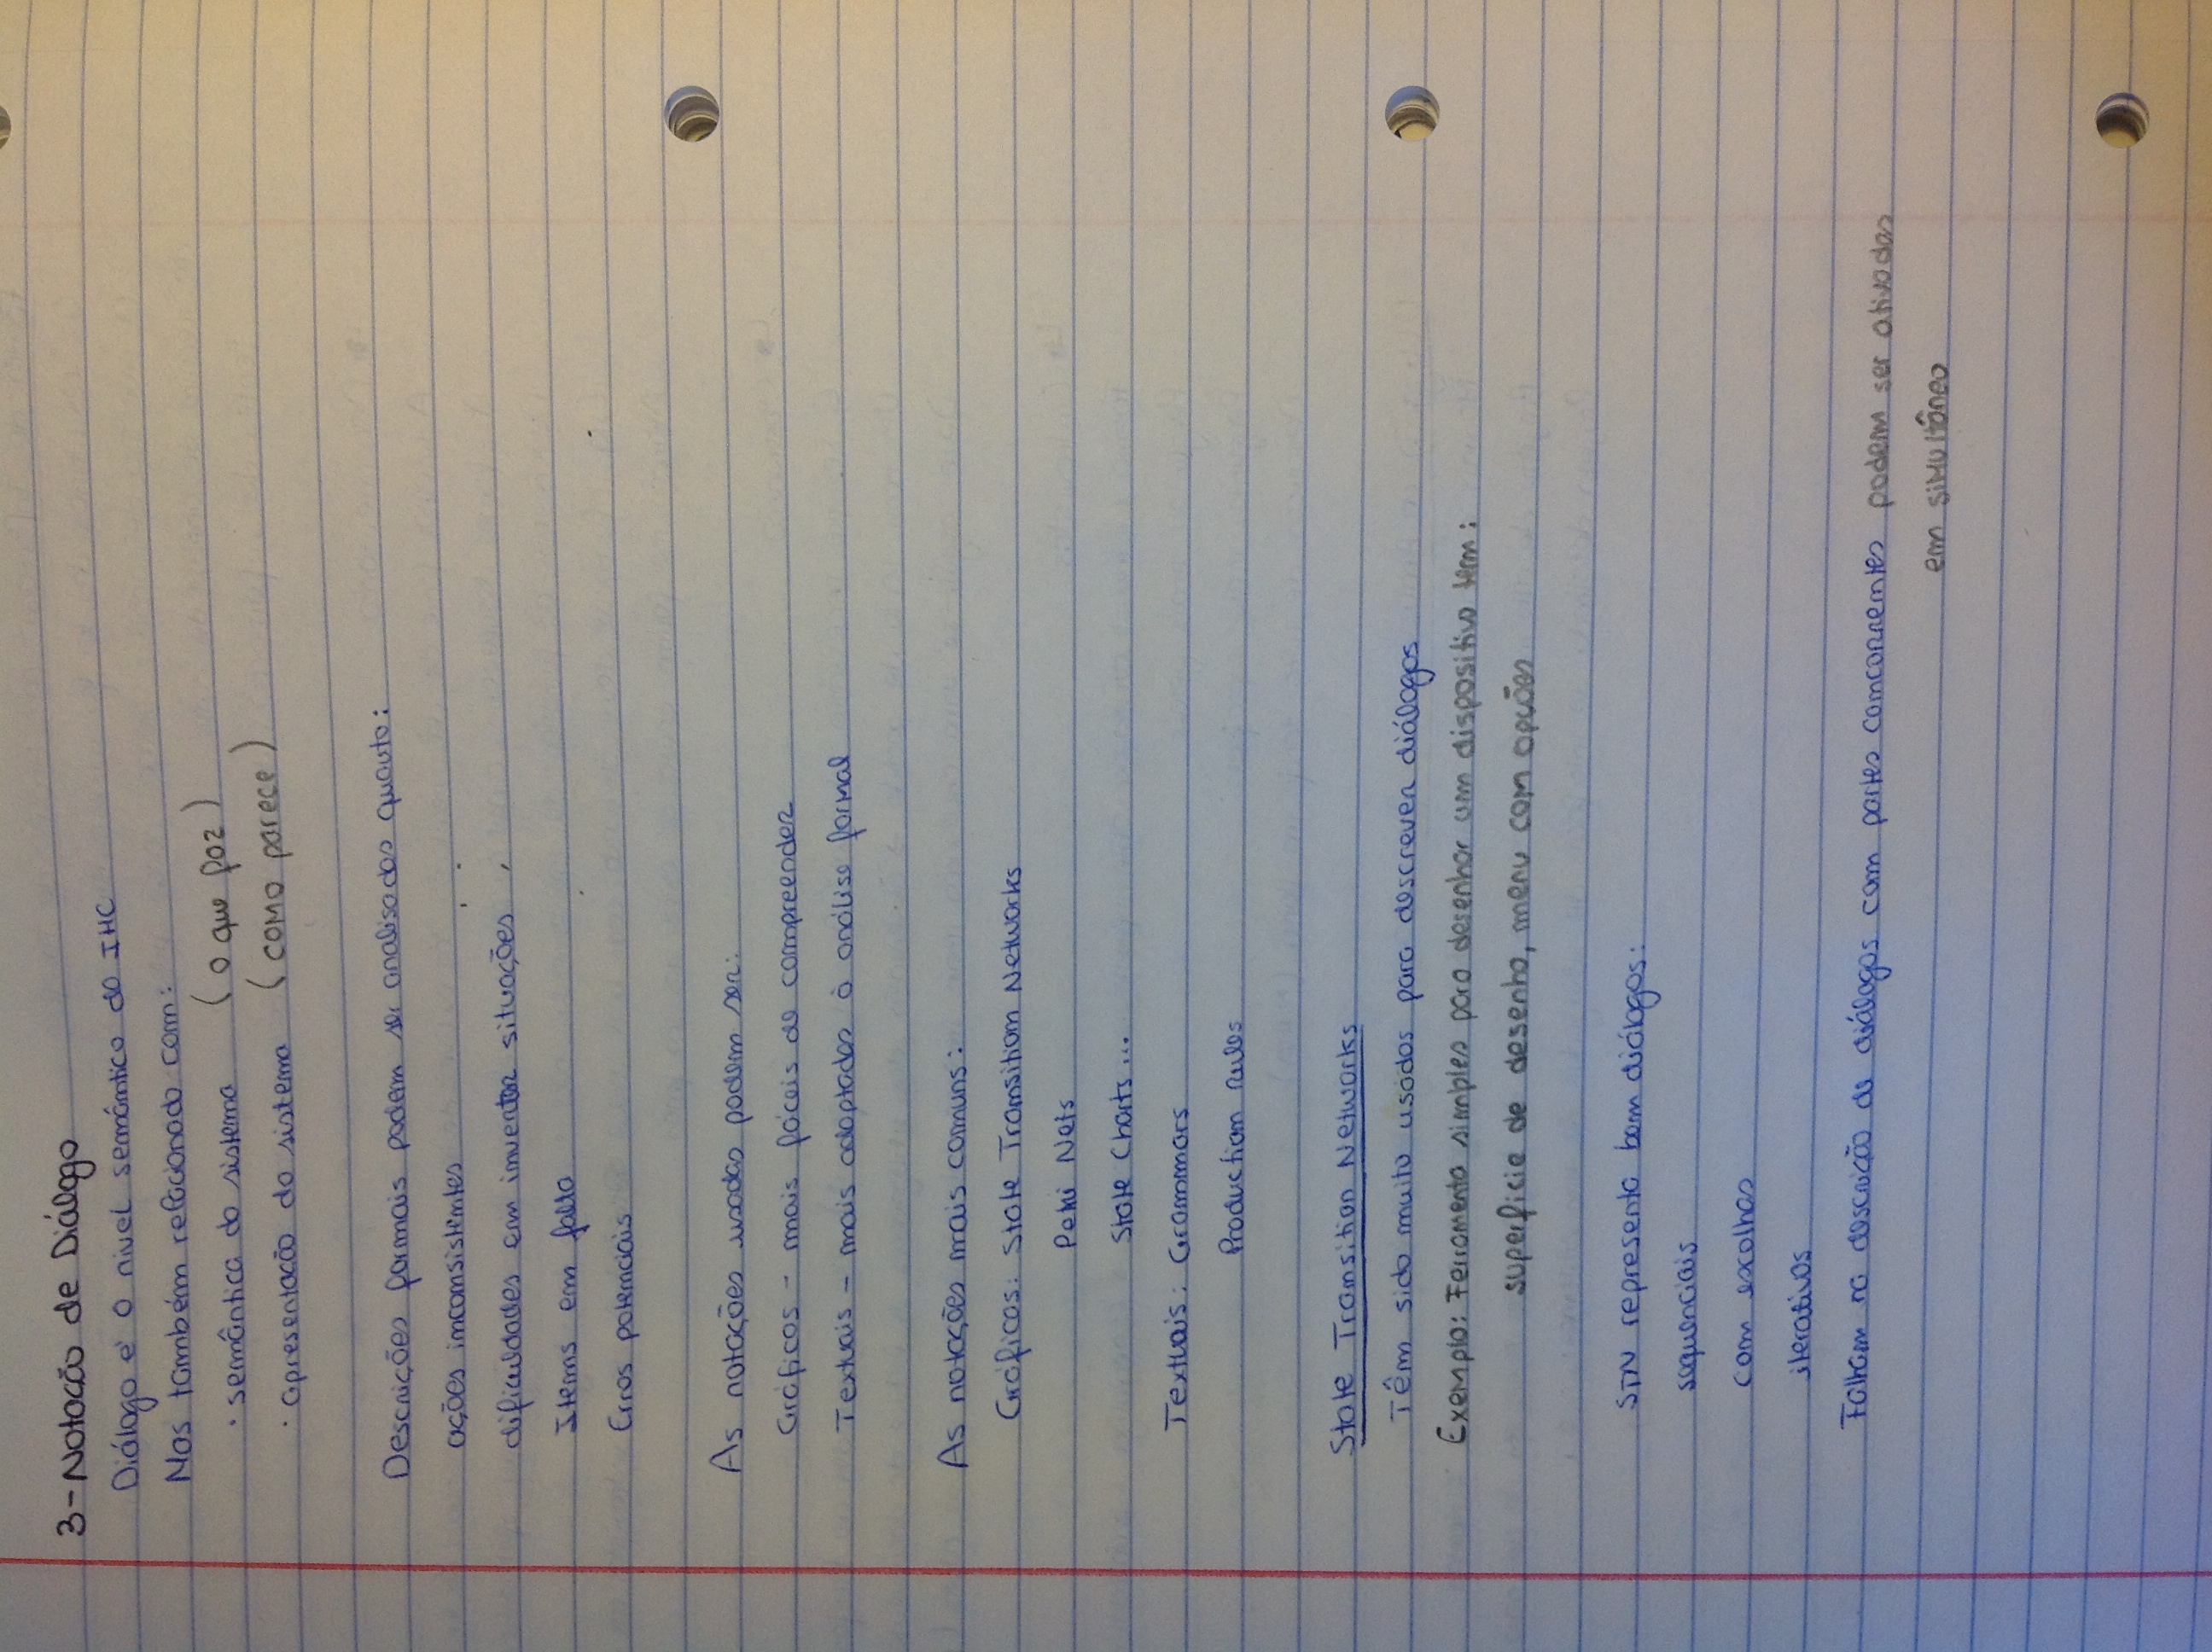 3 - Notação de Diálogo
Diálogo é o nivel semântico do IHC
Mas também relacionado com:
· semântica do sistema (o que faz)
· apresentação do sistema (como parece)
Descrições formais podem ser analisadas quanto:
ações inconsistentes
dificuldades em inverter situações
Items em falta
Erros potenciais
As notações usadas podem ser:
Gráficos - mais fáceis de compreender
Textuais - mais adaptadas à análise formal
As notações mais comuns:
Gráficos: State Transition Networks
Petri Nets
State Charts...
Textuais: Grammars
Production rules
State Transition Networks
Têm sido muito usados para descrever diálogos
Exemplo: Ferramenta simples para desenhar um dispositivo tem:
superficie de desenho, menu com opções
STN representa bem diálogos:
sequenciais
com escolhas
iterativos
Falham na descrição de diálogos com partes concorrentes podem ser ativadas
em simultâneo